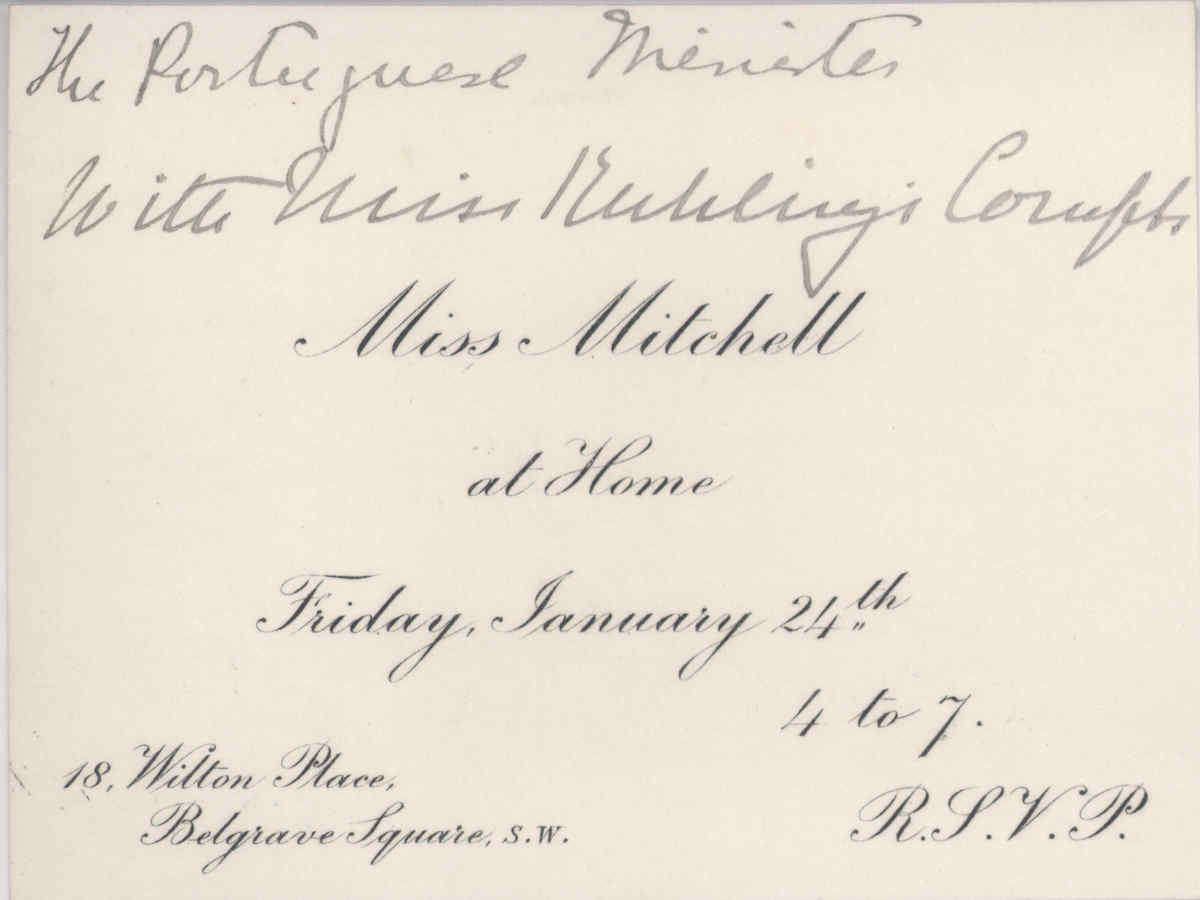 The Portuguese Minister
With Miss Compts
Miss Mitchell
at Home
Friday, January 24th
4 to 7.
18, Wilton Place,
Belgrave Square, S.W.
R.S.V.P.